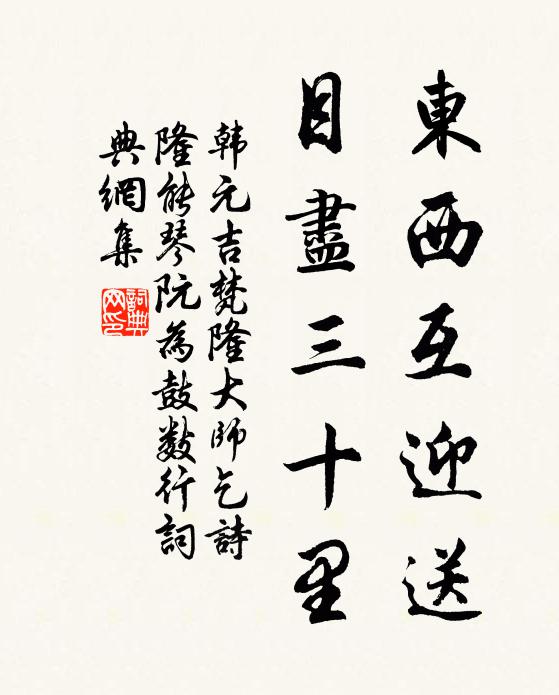 東西互迎送
目盡三十里
韩元吉梵隆大師乞詩
隆能琴阮為鼓數行詞
典網集
詞典网印